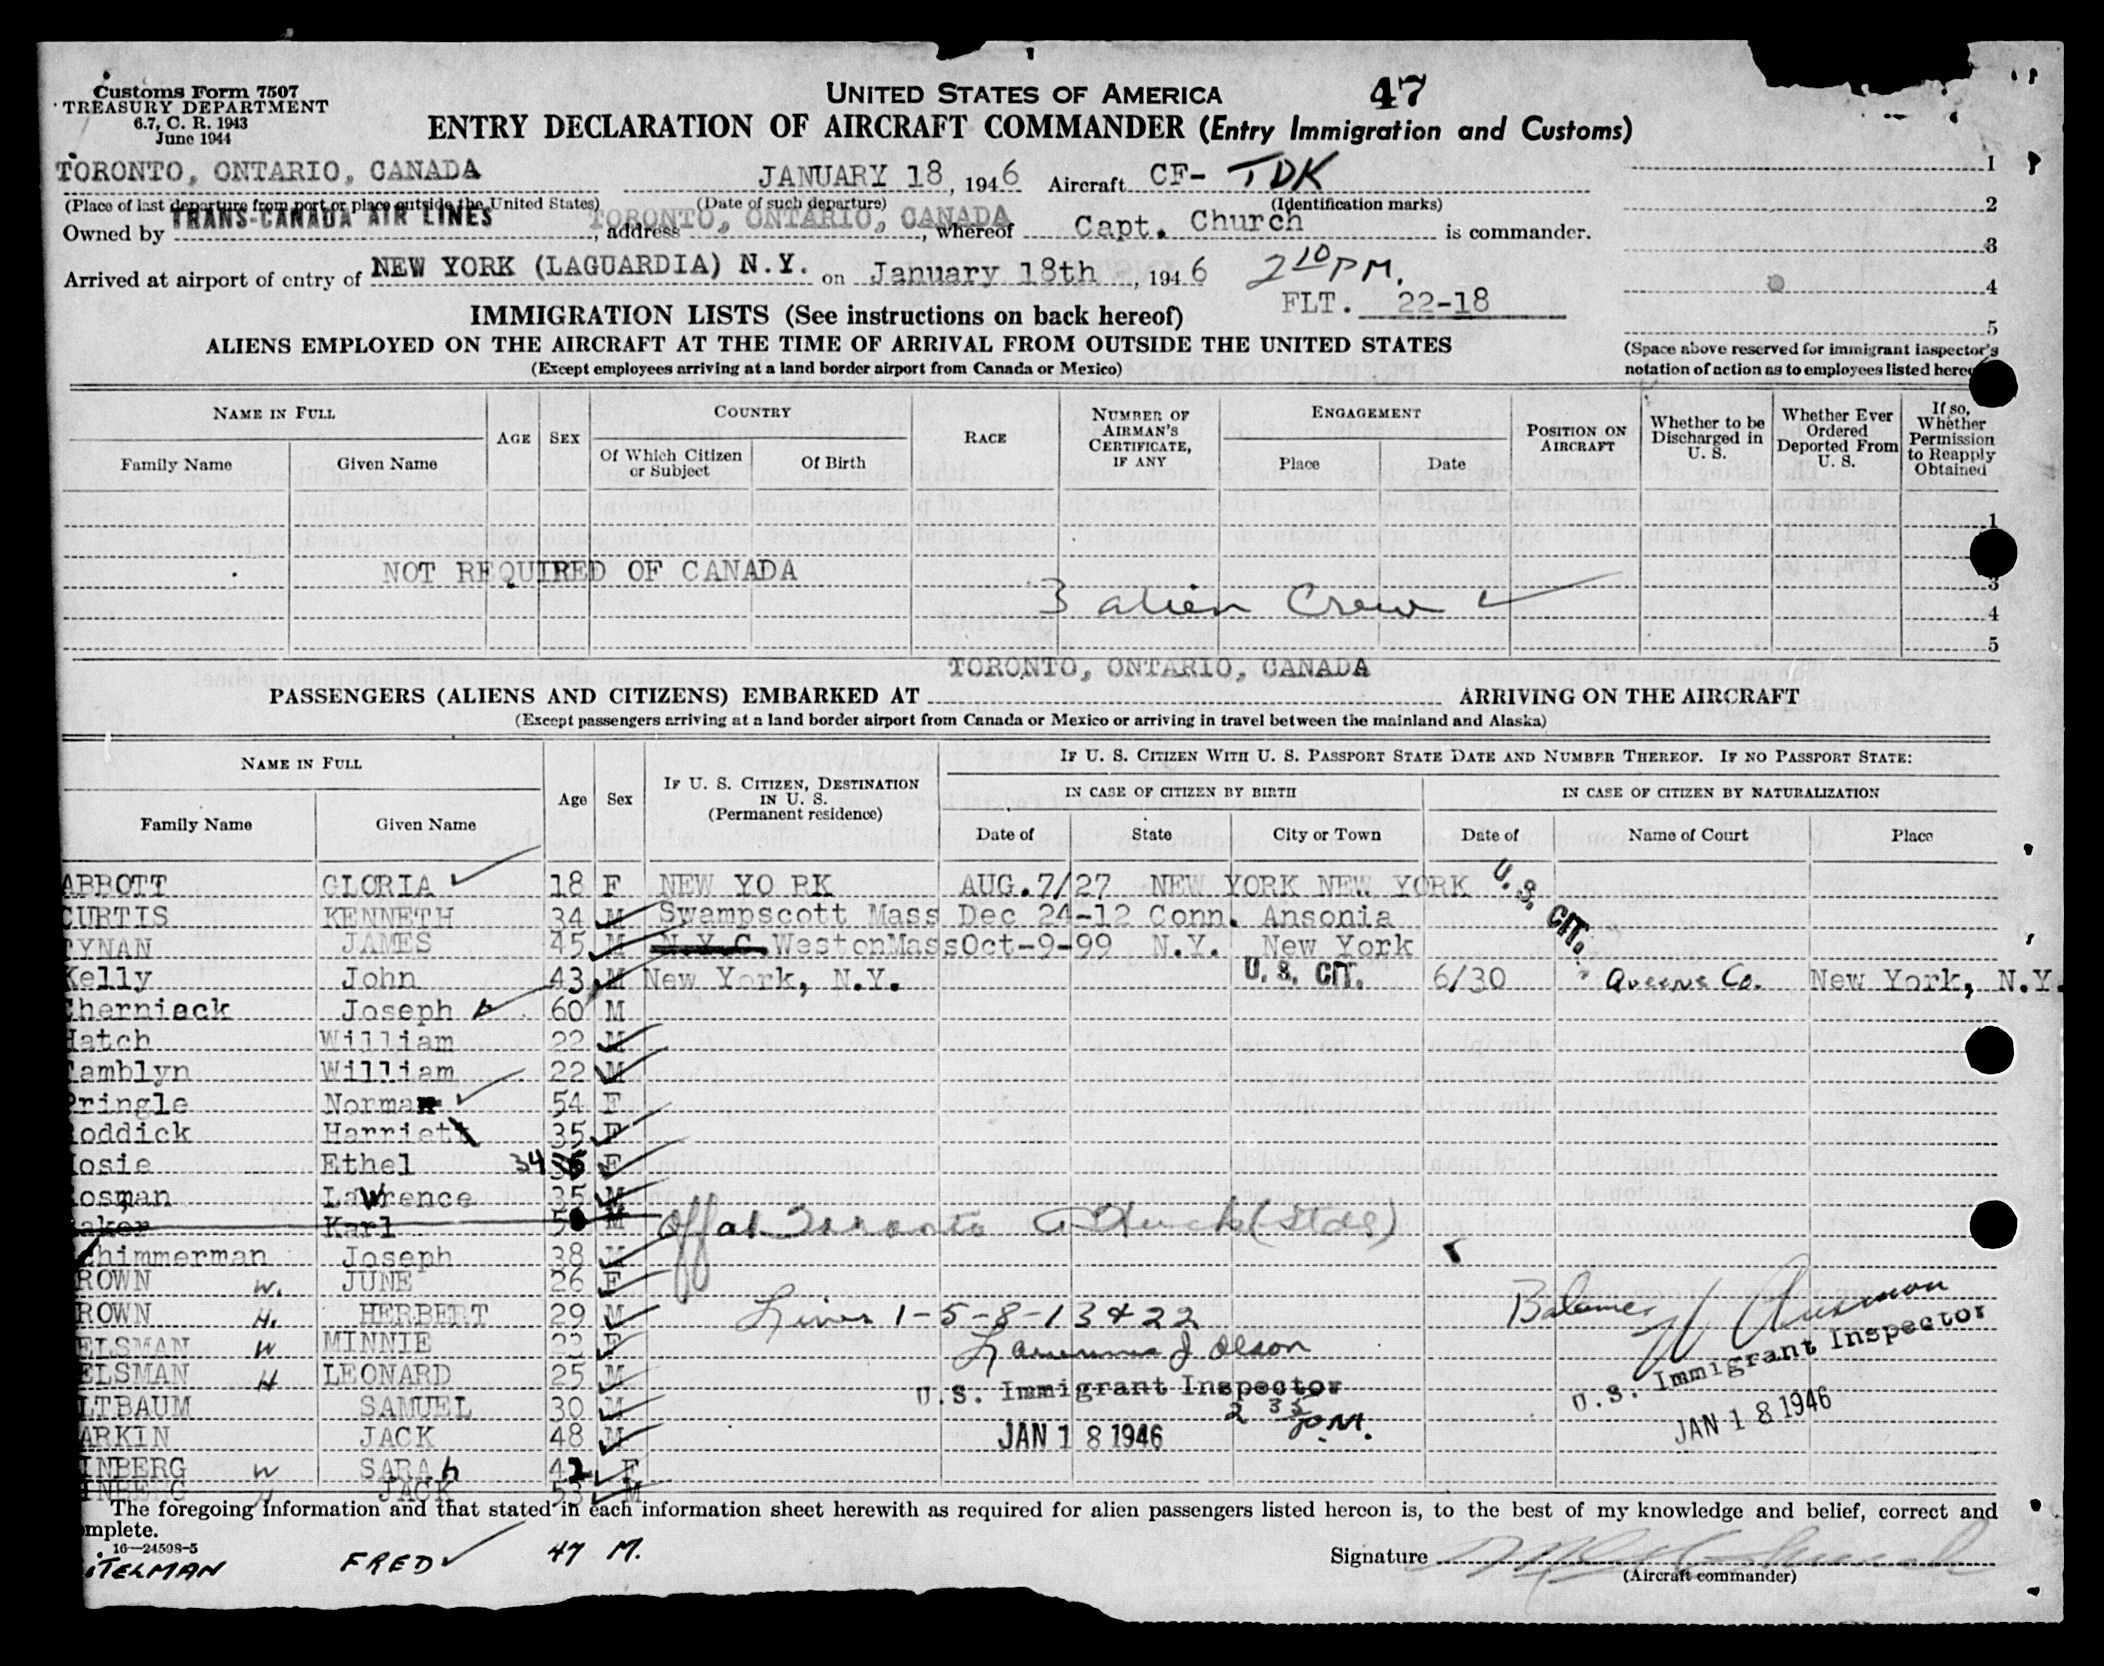 Customs Form 7507
TREASURY DEPARTMENT
6.7, C. R. 1943
June 1944
UNITED STATES OF AMERICA
47
ENTRY DECLARATION OF AIRCRAFT COMMANDER (Entry Immigration and Customs)
TORONTO, ONTARIO, CANADA JANUARY 18, 1946 Aircraft CF- TDK
1
(Place of last departure from port or place outside the United States) (Date of such departure) (Identification marks)
2
Owned by TRANS-CANADA AIR LINES, address TORONTO, ONTARIO, CANADA, whereof Capt. Church is commander.
3
Arrived at airport of entry of NEW YORK (LAGUARDIA) N.Y. on January 18th, 1946 2 10 PM.
4
FLT. 22-18
5
IMMIGRATION LISTS (See instructions on back hereof)
ALIENS EMPLOYED ON THE AIRCRAFT AT THE TIME OF ARRIVAL FROM OUTSIDE THE UNITED STATES
(Except employees arriving at a land border airport from Canada or Mexico)
(Space above reserved for immigrant inspector's
notation of action as to employees listed
NAME IN FULL
Family Name Given Name
AGE SEX
COUNTRY
Of Which Citizen or Subject Of Birth
RACE
NUMBER OF AIRMAN'S CERTIFICATE, IF ANY
ENGAGEMENT
Place Date
POSITION ON AIRCRAFT
Whether to be Discharged in U. S.
Whether Ever Ordered Deported From U. S.
If so, Whether Permission to Reapply Obtained
1
NOT REQUIRED OF CANADA
3
3 alien Crew
4
5
TORONTO, ONTARIO, CANADA
PASSENGERS (ALIENS AND CITIZENS) EMBARKED AT ARRIVING ON THE AIRCRAFT
(Except passengers arriving at a land border airport from Canada or Mexico or arriving in travel between the mainland and Alaska)
NAME IN FULL
Family Name Given Name
Age Sex
IF U. S. CITIZEN, DESTINATION IN U. S. (Permanent residence)
IF U. S. CITIZEN WITH U. S. PASSPORT STATE DATE AND NUMBER THEREOF. IF NO PASSPORT STATE:
IN CASE OF CITIZEN BY BIRTH IN CASE OF CITIZEN BY NATURALIZATION
Date of State City or Town Date of Name of Court Place
ABBOTT GLORIA 18 F NEW YORK AUG.7/27 NEW YORK NEW YORK U. S. CIT.
CURTIS KENNETH 34 M Swampscott Mass Dec 24-12 Conn. Ansonia
TYNAN JAMES 45 M N.Y.C. Weston Mass Oct-9-99 N.Y. New York
Kelly John 43 M New York, N.Y. U. S. CIT. 6/30 Queens Co. New York, N.Y.
Cherniack Joseph 60 M
Hatch William 22 M
Tamblyn William 22 M
Pringle Norma 54 F
oddick Harriet 35 F
osie Ethel 34 F
osman Lawrence 35 M
aker Karl M Off at Toronto
chimmerman Joseph 38 M
ROWN W. JUNE 26 F
ROWN H. HERBERT 29 M Lines 1-5-8-13 & 22
ELSMAN W MINNIE 23 F
ELSMAN H LEONARD 25 M
U.S. Immigrant Inspector
U.S. Immigrant Inspector
LTBAUM SAMUEL 30 M
2 35 P.M.
ARKIN JACK 48 M JAN 18 1946
JAN 18 1946
INBERG W SARAh 42 F
INBERG H JACK 53 M
The foregoing information and that stated in each information sheet herewith as required for alien passengers listed hereon is, to the best of my knowledge and belief, correct and
mplete.
16—24598-5
ITELMAN FRED 47 M.
Signature
(Aircraft commander)